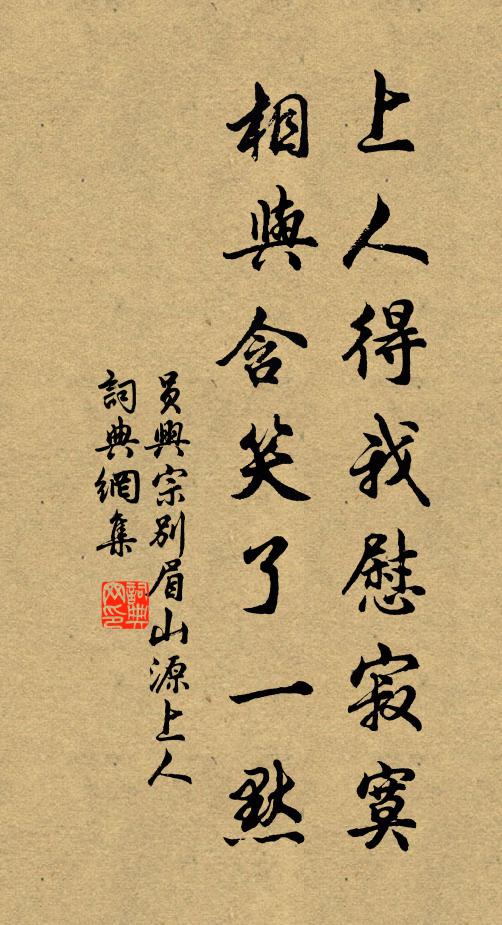 上人得我慰寂寞
相與含笑了一默
員興宗別眉山源上人
詞典網集
詞典
网印